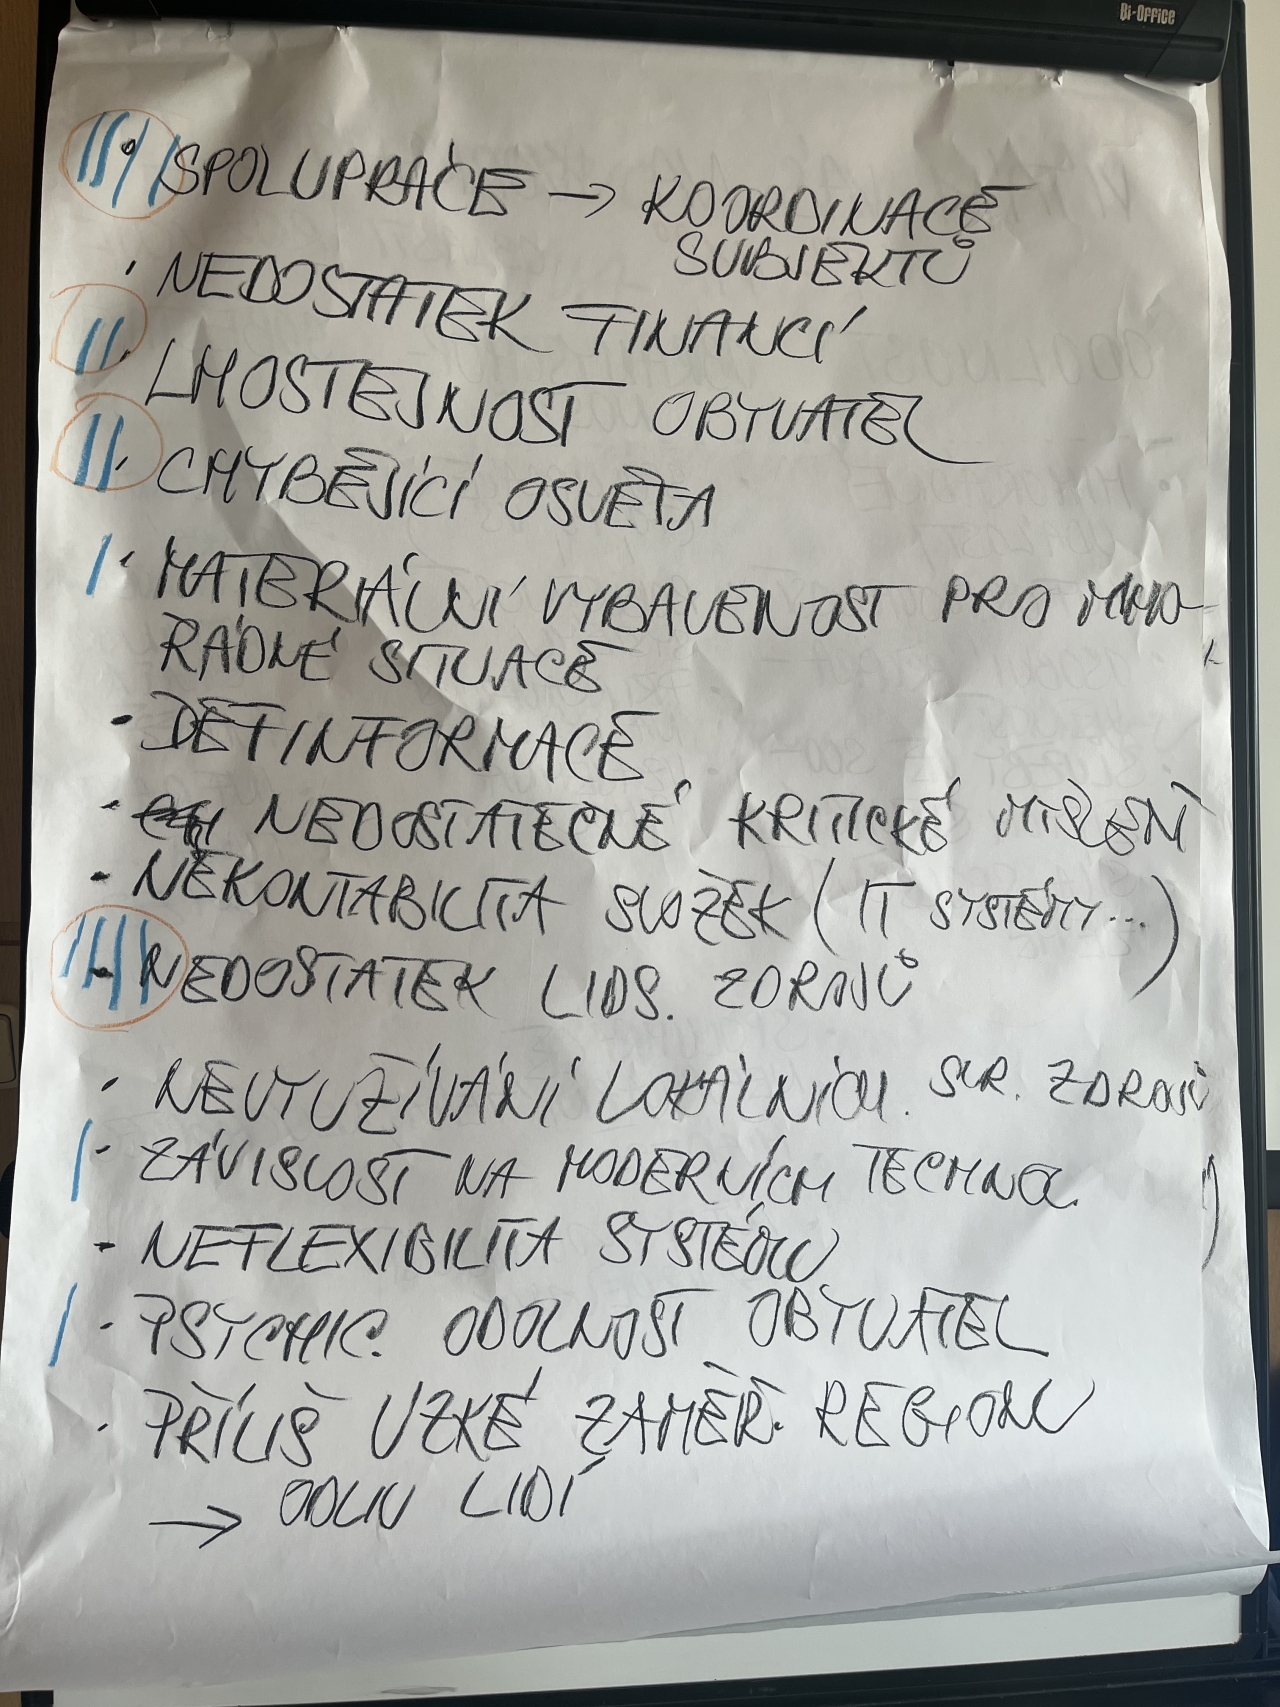 Bi-Office
• SPOLUPRÁCE → KOORDINACE
SUBJEKTŮ
• NEDOSTATEK FINANCÍ
• LHOSTEJNOST OBYVATEL
• CHYBĚJÍCÍ OSVĚTA
• MATERIÁLNÍ VYBAVENOST PRO MIMO-
ŘÁDNÉ SITUACE
• DEFINFORMACE
• NEDOSTATEČNÉ KRITICKÉ MYŠLENÍ
- NEKONTABILITA SLOŽEK (IT SYSTÉMY...)
- NEDOSTATEK LIDS. ZDROJŮ
- NEVYUŽÍVÁNÍ LOKÁLNÍCH. SUR. ZDROJŮ
- ZÁVISLOST NA MODERNÍCH TECHNOL.
- NEFLEXIBILITA SYSTÉMU
- PSYCHIC. ODOLNOST OBYVATEL
• PŘÍLIŠ ÚZKÉ ZAMĚŘ. REGIONU
→ ODLIV LIDÍ